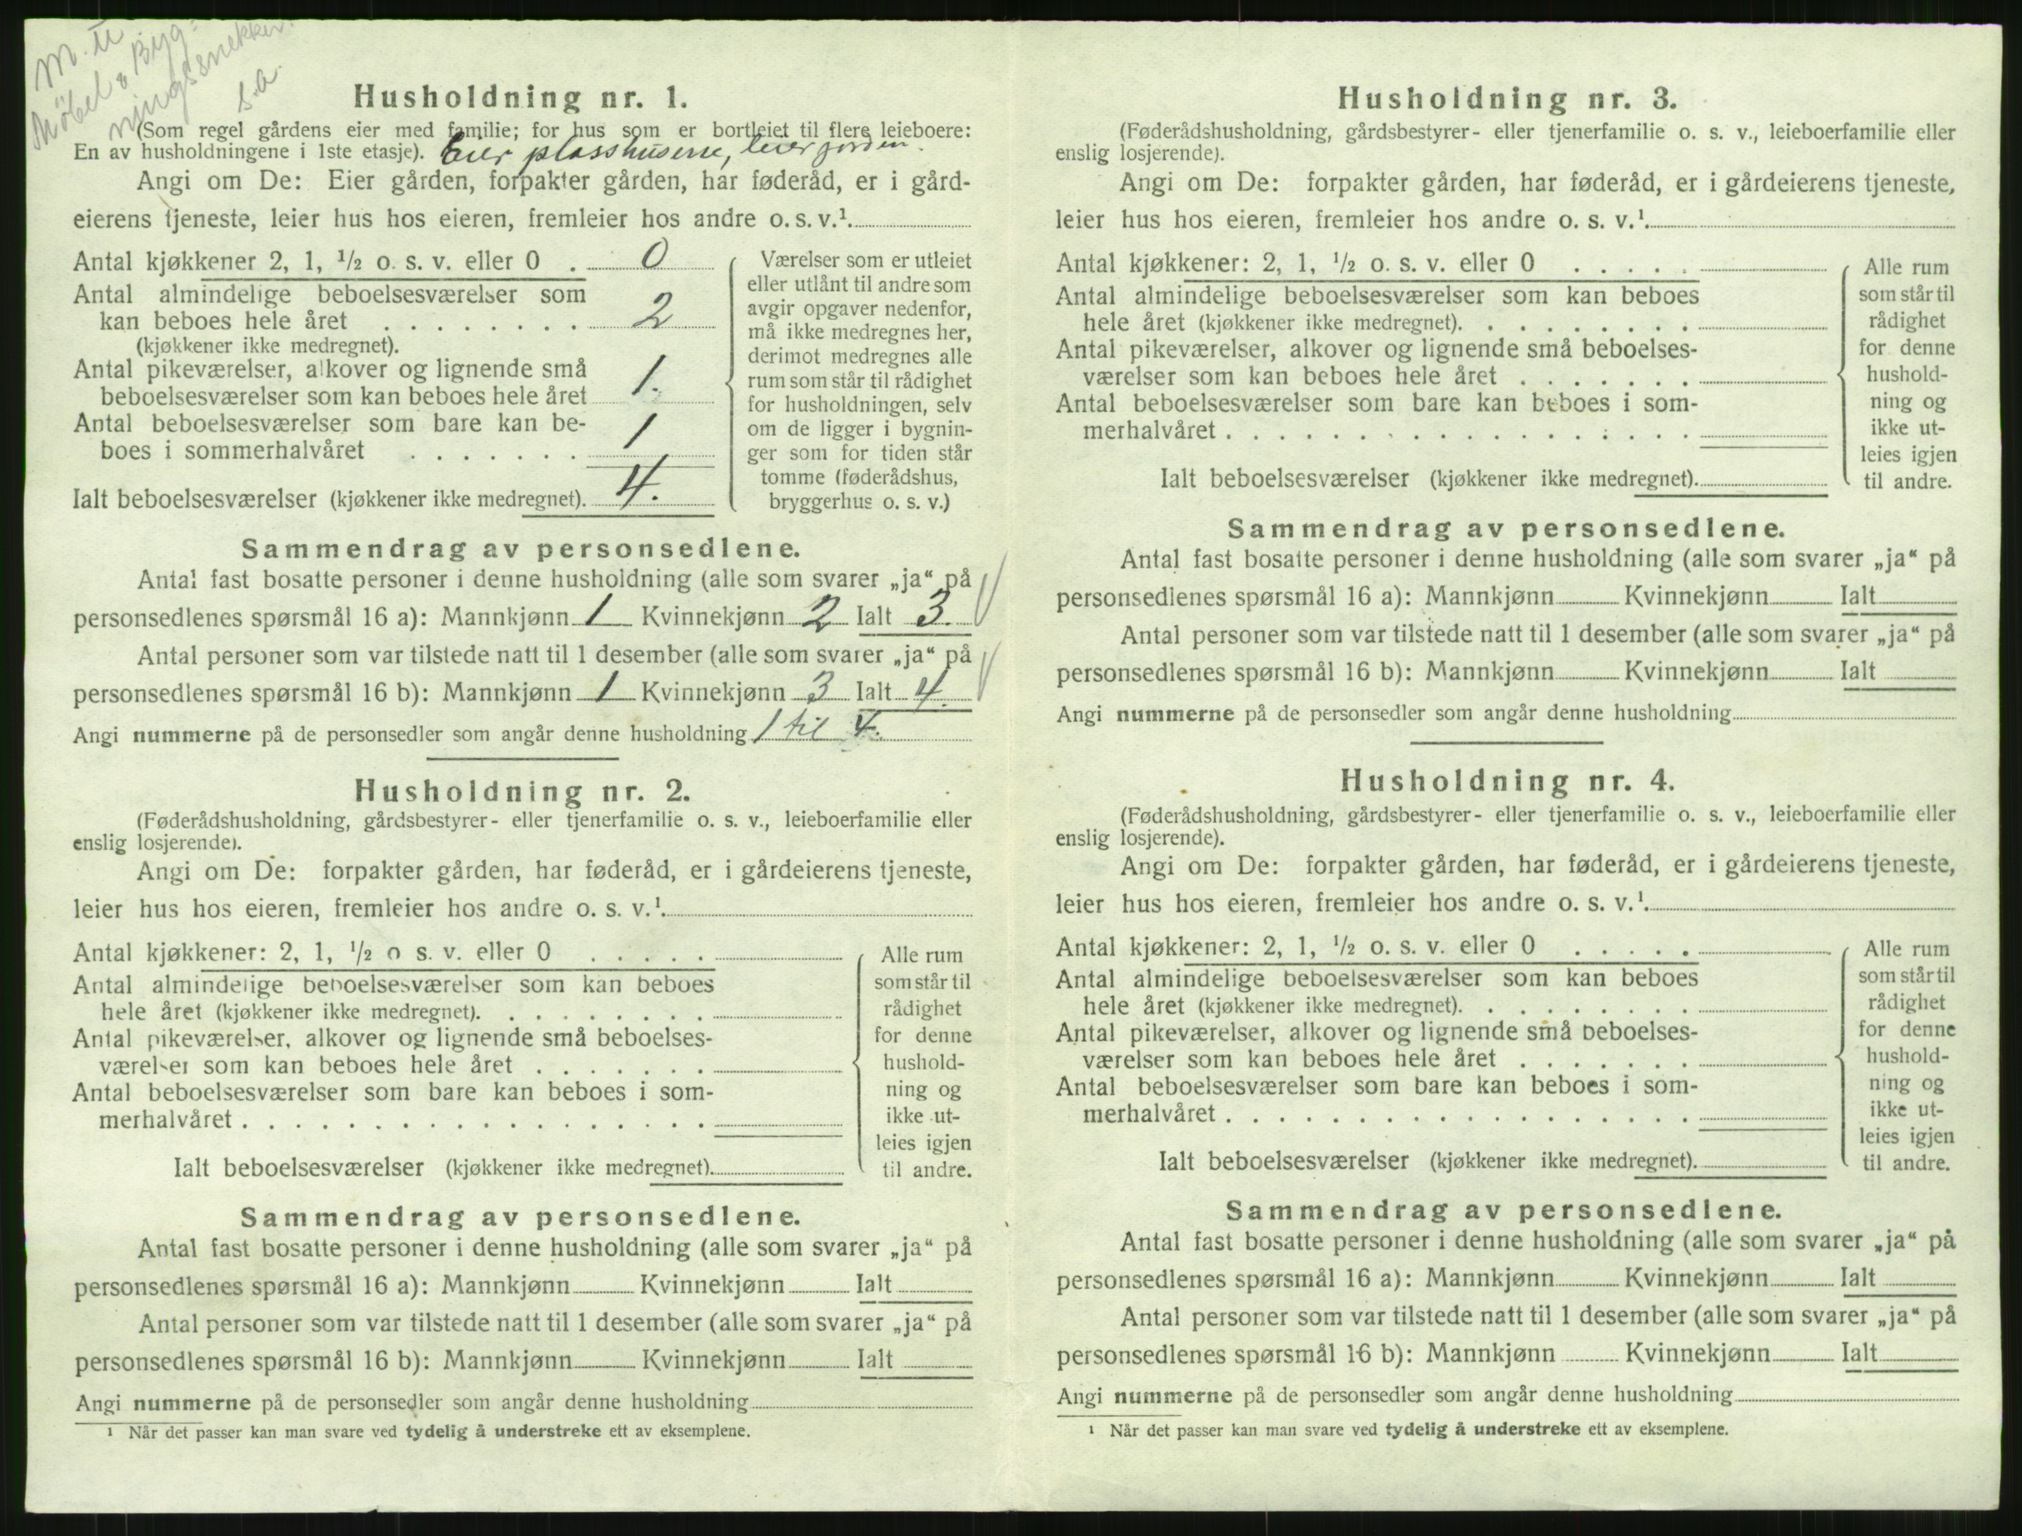 M. u
Møbel & Byg-
ningssnekker.
s.a.
Husholdning nr. 1.
(Som regel gårdens eier med familie; for hus som er bortleiet til flere leieboere:
En av husholdningene i 1ste etasje). Eier plasshusene, leier jorden.
Angi om De: Eier gården, forpakter gården, har føderåd, er i gård-
eierens tjeneste, leier hus hos eieren, fremleier hos andre o. s. v.¹.
Antal kjøkkener 2, 1, ½ o. s. v. eller 0 . 0
Antal almindelige beboelsesværelser som
kan beboes hele året . . . . . . . . 2
(kjøkkener ikke medregnet).
Antal pikeværelser, alkover og lignende små
beboelsesværelser som kan beboes hele året 1.
Antal beboelsesværelser som bare kan be-
boes i sommerhalvåret . . . . . . . 1
Ialt beboelsesværelser (kjøkkener ikke medregnet). 4.
Værelser som er utleiet
eller utlånt til andre som
avgir opgaver nedenfor,
må ikke medregnes her,
derimot medregnes alle
rum som står til rådighet
for husholdningen, selv
om de ligger i bygnin-
ger som for tiden står
tomme (føderådshus,
bryggerhus o. s. v.)
Sammendrag av personsedlene.
Antal fast bosatte personer i denne husholdning (alle som svarer „ja“ på
personsedlenes spørsmål 16 a): Mannkjønn 1 Kvinnekjønn 2 Ialt 3.
Antal personer som var tilstede natt til 1 desember (alle som svarer „ja“ på
personsedlenes spørsmål 16 b): Mannkjønn 1 Kvinnekjønn 3 Ialt 4.
Angi nummerne på de personsedler som angår denne husholdning 1 til 4.
Husholdning nr. 2.
(Føderådshusholdning, gårdsbestyrer- eller tjenerfamilie o. s. v., leieboerfamilie eller
enslig losjerende).
Angi om De: forpakter gården, har føderåd, er i gårdeierens tjeneste,
leier hus hos eieren, fremleier hos andre o. s. v.¹.
Antal kjøkkener: 2, 1, ½ o s. v. eller 0 . . . . .
Antal almindelige beboelsesværelser som kan beboes
hele året (kjøkkener ikke medregnet). . . . . . . . .
Antal pikeværelser, alkover og lignende små beboelses-
værelser som kan beboes hele året . . . . . . .
Antal beboelsesværelser som bare kan beboes i som-
merhalvåret . . . . . . . . . . . . . . . .
Ialt beboelsesværelser (kjøkkener ikke medregnet).
Alle rum
som står til
rådighet
for denne
hushold-
ning og
ikke ut-
leies igjen
til andre.
Sammendrag av personsedlene.
Antal fast bosatte personer i denne husholdning (alle som svarer „ja“ på
personsedlenes spørsmål 16 a): Mannkjønn Kvinnekjønn Ialt
Antal personer som var tilstede natt til 1 desember (alle som svarer „ja“ på
personsedlenes spørsmål 16 b): Mannkjønn Kvinnekjønn Ialt
Angi nummerne på de personsedler som angår denne husholdning
¹ Når det passer kan man svare ved tydelig å understreke ett av eksemplene.
Husholdning nr. 3.
(Føderådshusholdning, gårdsbestyrer- eller tjenerfamilie o. s. v., leieboerfamilie eller
enslig losjerende).
Angi om De: forpakter gården, har føderåd, er i gårdeierens tjeneste,
leier hus hos eieren, fremleier hos andre o. s. v.¹.
Antal kjøkkener: 2, 1, ½ o. s. v. eller 0 . . . . .
Antal almindelige beboelsesværelser som kan beboes
hele året (kjøkkener ikke medregnet). . . . . . . . .
Antal pikeværelser, alkover og lignende små beboelses-
værelser som kan beboes hele året . . . . . . .
Antal beboelsesværelser som bare kan beboes i som-
merhalvåret . . . . . . . . . . . . . . . .
Ialt beboelsesværelser (kjøkkener ikke medregnet).
Alle rum
som står til
rådighet
for denne
hushold-
ning og
ikke ut-
leies igjen
til andre.
Sammendrag av personsedlene.
Antal fast bosatte personer i denne husholdning (alle som svarer „ja“ på
personsedlenes spørsmål 16 a): Mannkjønn Kvinnekjønn Ialt
Antal personer som var tilstede natt til 1 desember (alle som svarer „ja“ på
personsedlenes spørsmål 16 b): Mannkjønn Kvinnekjønn Ialt
Angi nummerne på de personsedler som angår denne husholdning
Husholdning nr. 4.
(Føderådshusholdning, gårdsbestyrer- eller tjenerfamilie o. s. v., leieboerfamilie eller
enslig losjerende).
Angi om De: forpakter gården, har føderåd, er i gårdeierens tjeneste,
leier hus hos eieren, fremleier hos andre o. s. v.¹.
Antal kjøkkener: 2, 1, ½ o. s. v. eller 0 . . . . .
Antal almindelige beboelsesværelser som kan beboes
hele året (kjøkkener ikke medregnet). . . . . . . . .
Antal pikeværelser, alkover og lignende små beboelses-
værelser som kan beboes hele året . . . . . . .
Antal beboelsesværelser som bare kan beboes i som-
merhalvåret . . . . . . . . . . . . . . . .
Ialt beboelsesværelser (kjøkkener ikke medregnet).
Alle rum
som står til
rådighet
for denne
hushold-
ning og
ikke ut-
leies igjen
til andre.
Sammendrag av personsedlene.
Antal fast bosatte personer i denne husholdning (alle som svarer „ja“ på
personsedlenes spørsmål 16 a): Mannkjønn Kvinnekjønn Ialt
Antal personer som var tilstede natt til 1 desember (alle som svarer „ja“ på
personsedlenes spørsmål 16 b): Mannkjønn Kvinnekjønn Ialt
Angi nummerne på de personsedler som angår denne husholdning
¹ Når det passer kan man svare ved tydelig å understreke ett av eksemplene.